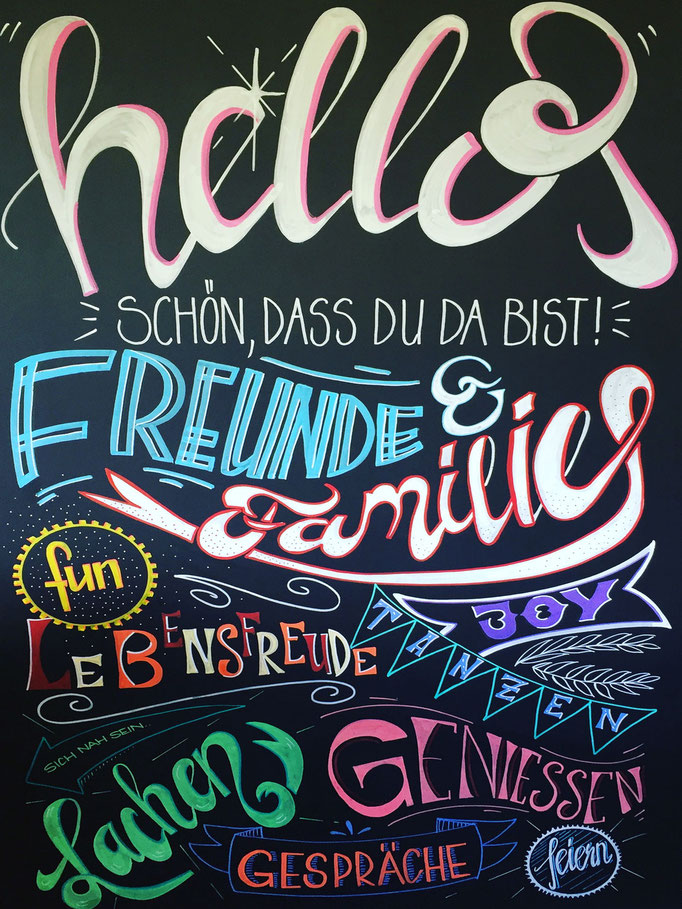 "hello"
SCHÖN, DASS DU DA BIST!
FREUNDE &
Familie
fun
JOY
LEBENSFREUDE
TANZEN
SICH NAH SEIN...
GENIESSEN
Lachen
GESPRÄCHE
feiern